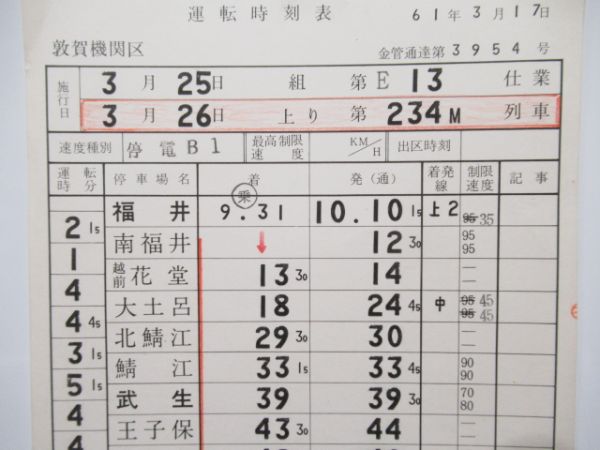 運転時刻表 61年3月17日
敦賀機関区 金管通達第3954号
施行日 3月25日 組 第E13 仕業
3月26日 上り 第234M 列車
速度種別 停電B1 最高制限速度 KM/H 出区時刻
運転時分 停車場名 着 発(通) 着発線 制限速度 記事
福井 乗 9.31 10.10 15 上2 95 35
2 15 南福井 ↓ 12 30 95 95
1 越前花堂 13 30 14 — —
4 大土呂 18 24 45 中 95 45 95 45
4 45 北鯖江 29 30 30 — —
3 15 鯖江 33 15 33 45 90 90
5 15 武生 39 39 30 70 80
4 王子保 43 30 44 — —
4